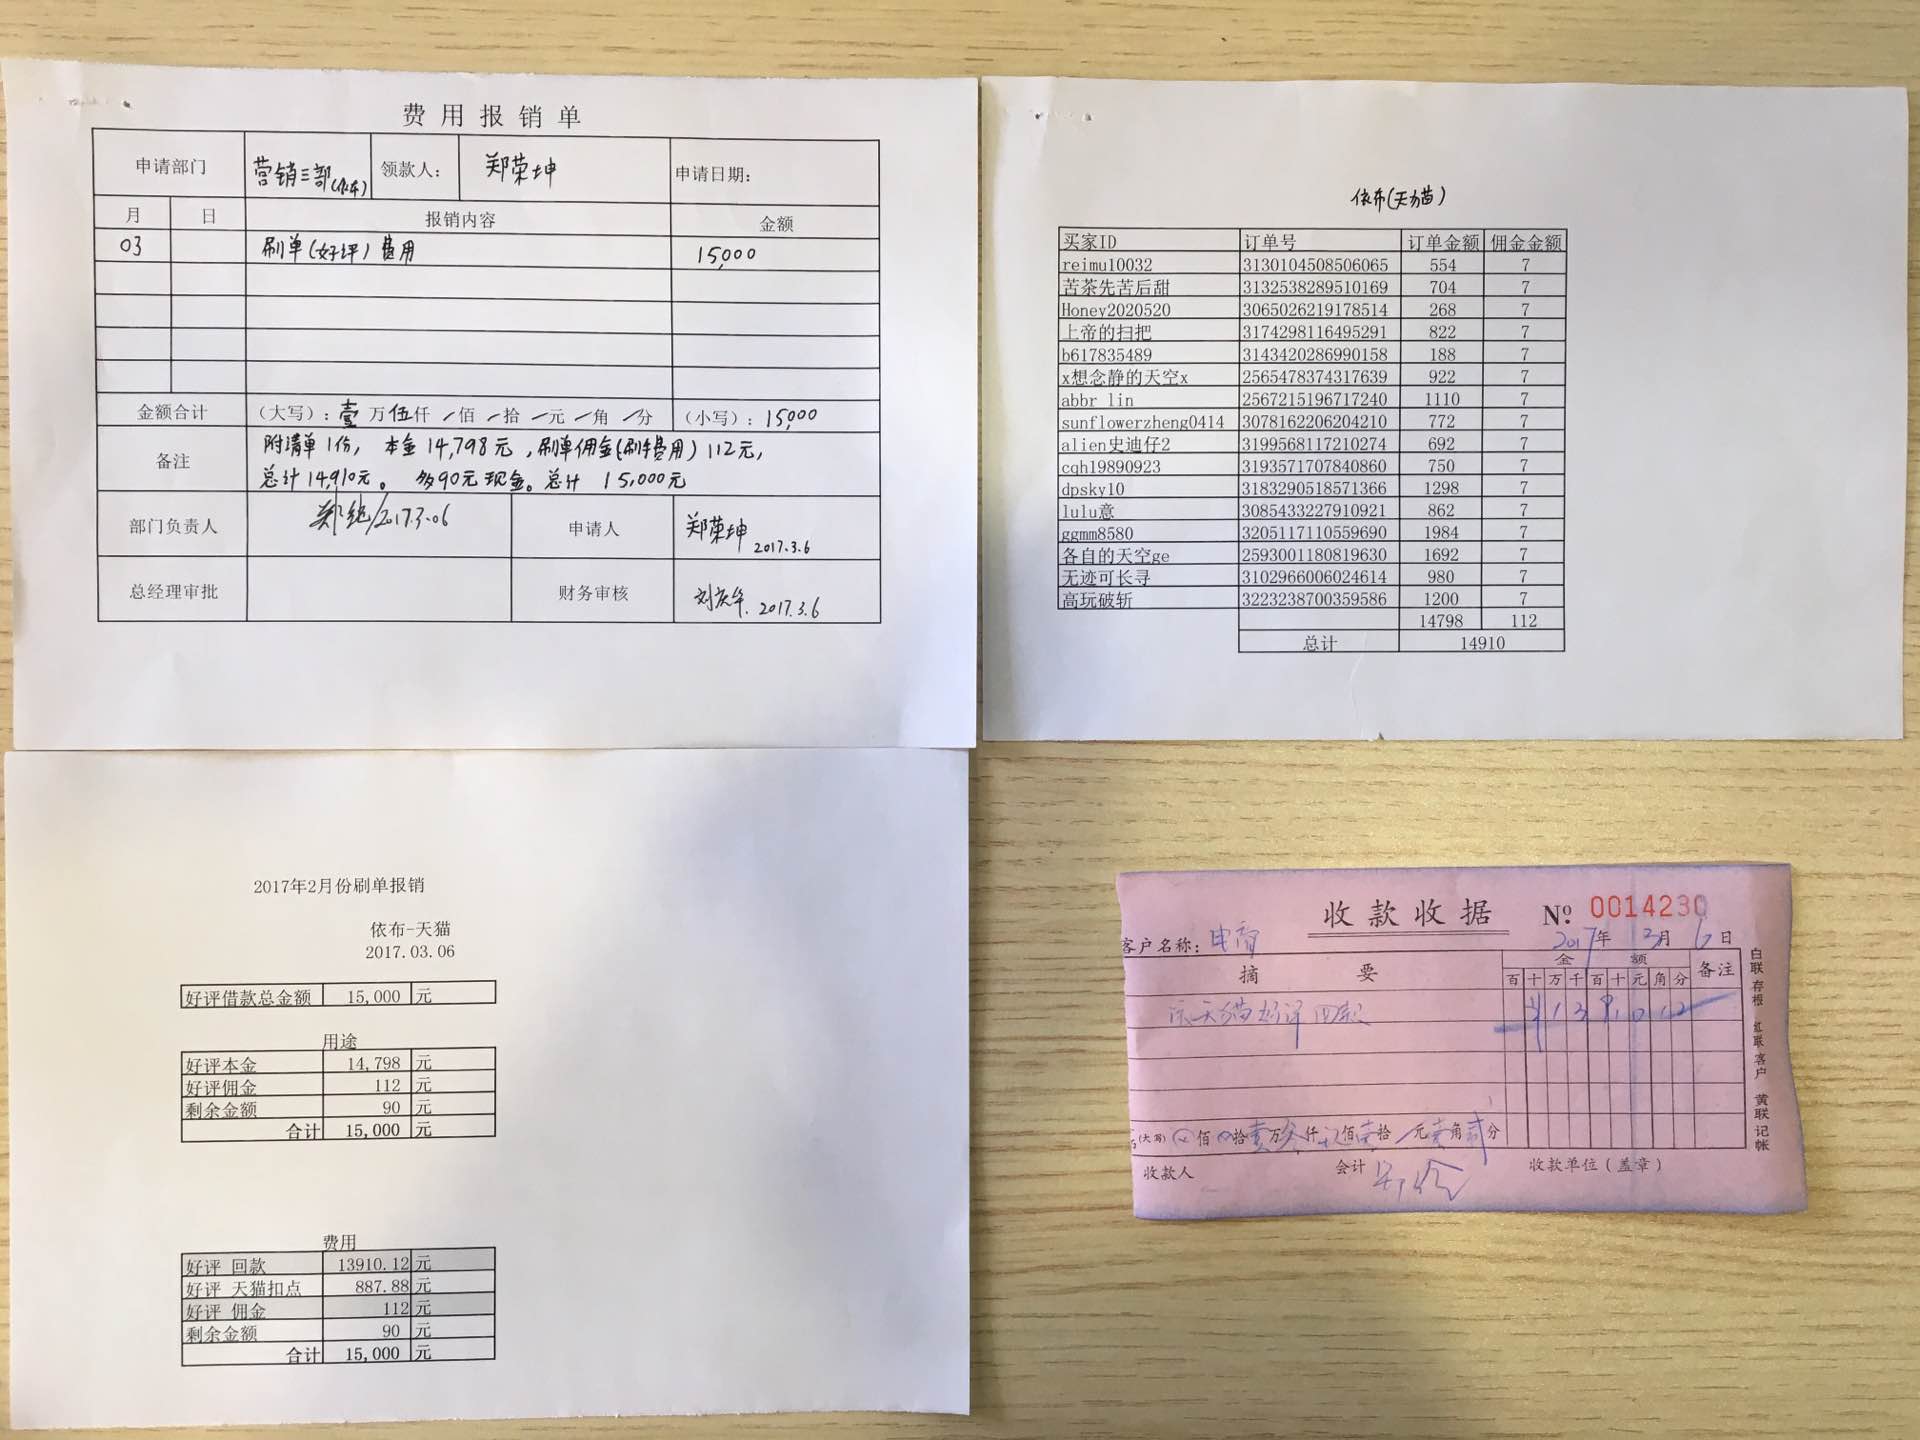 费用报销单
申请部门 营销三部(依布) 领款人: 郑荣坤 申请日期:
月 日 报销内容 金额
03 刷单(好评)费用 15,000
金额合计 (大写): 壹万伍仟/佰/拾/元/角/分 (小写): 15,000
备注 附清单1份, 本金14,798元, 刷单佣金(刷手费用)112元,
总计14,910元。 多90元现金。总计 15,000元
部门负责人 2017.3.06 申请人 郑荣坤 2017.3.6
总经理审批 财务审核 刘庆华. 2017.3.6
依布(天猫)
买家ID 订单号 订单金额 佣金金额
reimu10032 3130104508506065 554 7
苦茶先苦后甜 3132538289510169 704 7
Honey2020520 3065026219178514 268 7
上帝的扫把 3174298116495291 822 7
b617835489 3143420286990158 188 7
x想念静的天空x 2565478374317639 922 7
abbr lin 2567215196717240 1110 7
sunflowerzheng0414 3078162206204210 772 7
alien史迪仔2 3199568117210274 692 7
cqh19890923 3193571707840860 750 7
dpsky10 3183290518571366 1298 7
lulu意 3085433227910921 862 7
ggmm8580 3205117110559690 1984 7
各自的天空ge 2593001180819630 1692 7
无迹可长寻 3102966006024614 980 7
高玩破斩 3223238700359586 1200 7
14798 112
总计 14910
2017年2月份刷单报销
依布-天猫
2017.03.06
好评借款总金额 15,000 元
用途
好评本金 14,798 元
好评佣金 112 元
剩余金额 90 元
合计 15,000 元
费用
好评 回款 13910.12 元
好评 天猫扣点 887.88 元
好评 佣金 112 元
剩余金额 90 元
合计 15,000 元
收款收据 Nº 0014230
客户名称: 电商 2017年 3月 6日
摘要 金额 备注
百 十 万 千 百 十 元 角 分
天猫好评回款 ¥ 1 3 9 1 0 1 2
(大写) 佰 拾壹万叁仟玖佰壹拾 元壹角贰分
收款人 会计 收款单位(盖章)
白联存根 红联客户 黄联记帐